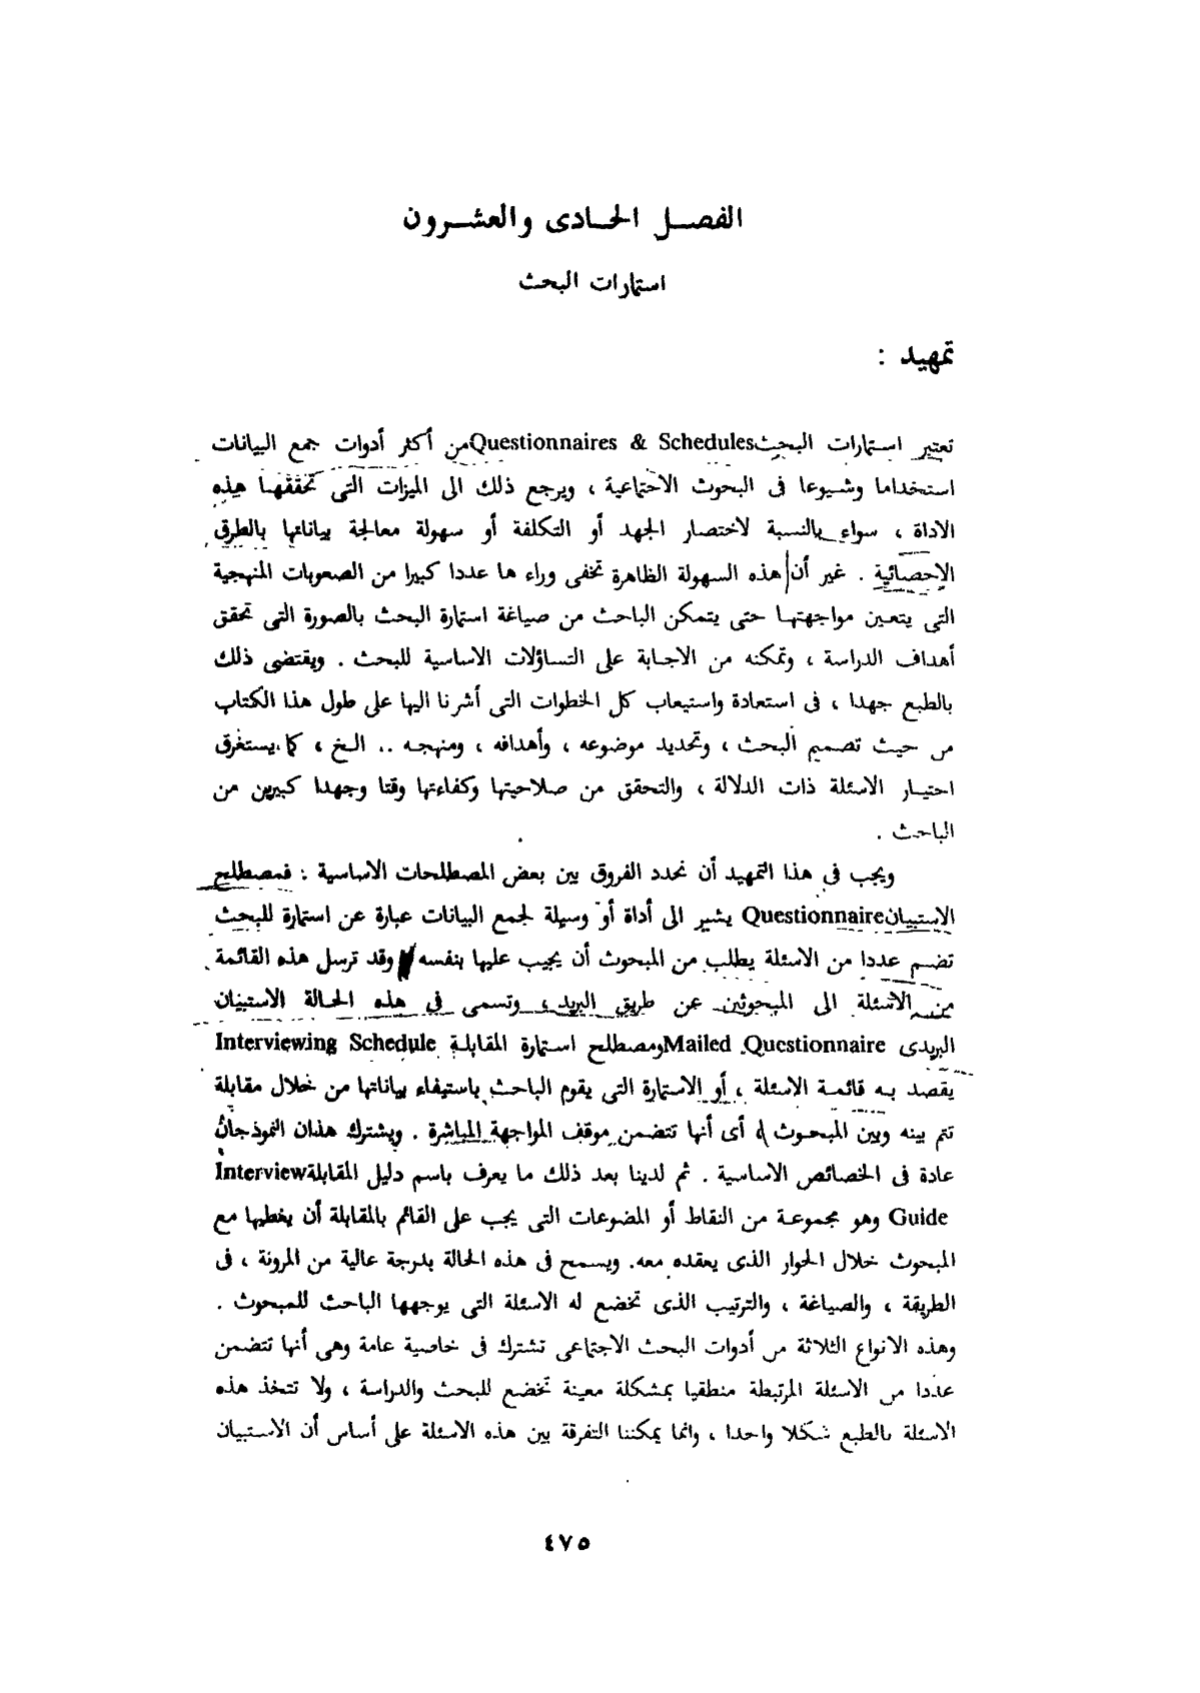 الفصل الحادى والعشرون
استمارات البحث
تمهيد :
تعتبر استمارات البحث Questionnaires & Schedules من أكثر أدوات جمع البيانات
استخداما وشيوعا فى البحوث الاجتماعية ، ويرجع ذلك الى الميزات التى تحققها هذه
الاداة ، سواء بالنسبة لاختصار الجهد أو التكلفة أو سهولة معالجة بياناتها بالطرق
الإحصائية . غير أن هذه السهولة الظاهرة تخفى وراء ها عددا كبيرا من الصعوبات المنهجية
التى يتعين مواجهتها حتى يتمكن الباحث من صياغة استمارة البحث بالصورة التى تحقق
أهداف الدراسة ، وتمكنه من الاجابة على التساؤلات الاساسية للبحث . ويقتضى ذلك
بالطبع جهدا ، فى استعادة واستيعاب كل الخطوات التى أشرنا اليها على طول هذا الكتاب
من حيث تصميم البحث ، وتحديد موضوعه ، وأهدافه ، ومنهجه .. الخ ، كما يستغرق
اختيار الاسئلة ذات الدلالة ، والتحقق من صلاحيتها وكفاءتها وقتا وجهدا كبيرين من
الباحث .
ويجب فى هذا التمهيد أن نحدد الفروق بين بعض المصطلحات الاساسية : فمصطلح
الاستبيان Questionnaire يشير الى أداة أو وسيلة لجمع البيانات عبارة عن استمارة للبحث
تضم عددا من الاسئلة يطلب من المبحوث أن يجيب عليها بنفسه وقد ترسل هذه القائمة
من الاسئلة الى المبحوثين عن طريق البريد ، وتسمى فى هذه الحالة الاستبيان
البريدى Mailed Questionnaire ومصطلح استمارة المقابلة Interviewing Schedule
يقصد به قائمة الاسئلة ، أو الاستمارة التى يقوم الباحث باستيفاء بياناتها من خلال مقابلة
تتم بينه وبين المبحوث ، أى أنها تتضمن موقف المواجهة المباشرة . ويشترك هذان النموذجان
عادة فى الخصائص الاساسية . ثم لدينا بعد ذلك ما يعرف باسم دليل المقابلة Interview
Guide وهو مجموعة من النقاط أو المضوعات التى يجب على القائم بالمقابلة أن يغطيها مع
المبحوث خلال الحوار الذى يعقده معه. ويسمح فى هذه الحالة بدرجة عالية من المرونة ، فى
الطريقة ، والصياغة ، والترتيب الذى تخضع له الاسئلة التى يوجهها الباحث للمبحوث .
وهذه الانواع الثلاثة من أدوات البحث الاجتماعى تشترك فى خاصية عامة وهى أنها تتضمن
عددا من الاسئلة المرتبطة منطقيا بمشكلة معينة تخضع للبحث والدراسة ، ولا تتخذ هذه
الاسئلة بالطبع شكلا واحدا ، وانما يمكننا التفرقة بين هذه الاسئلة على أساس أن الاستبيان
٤٧٥